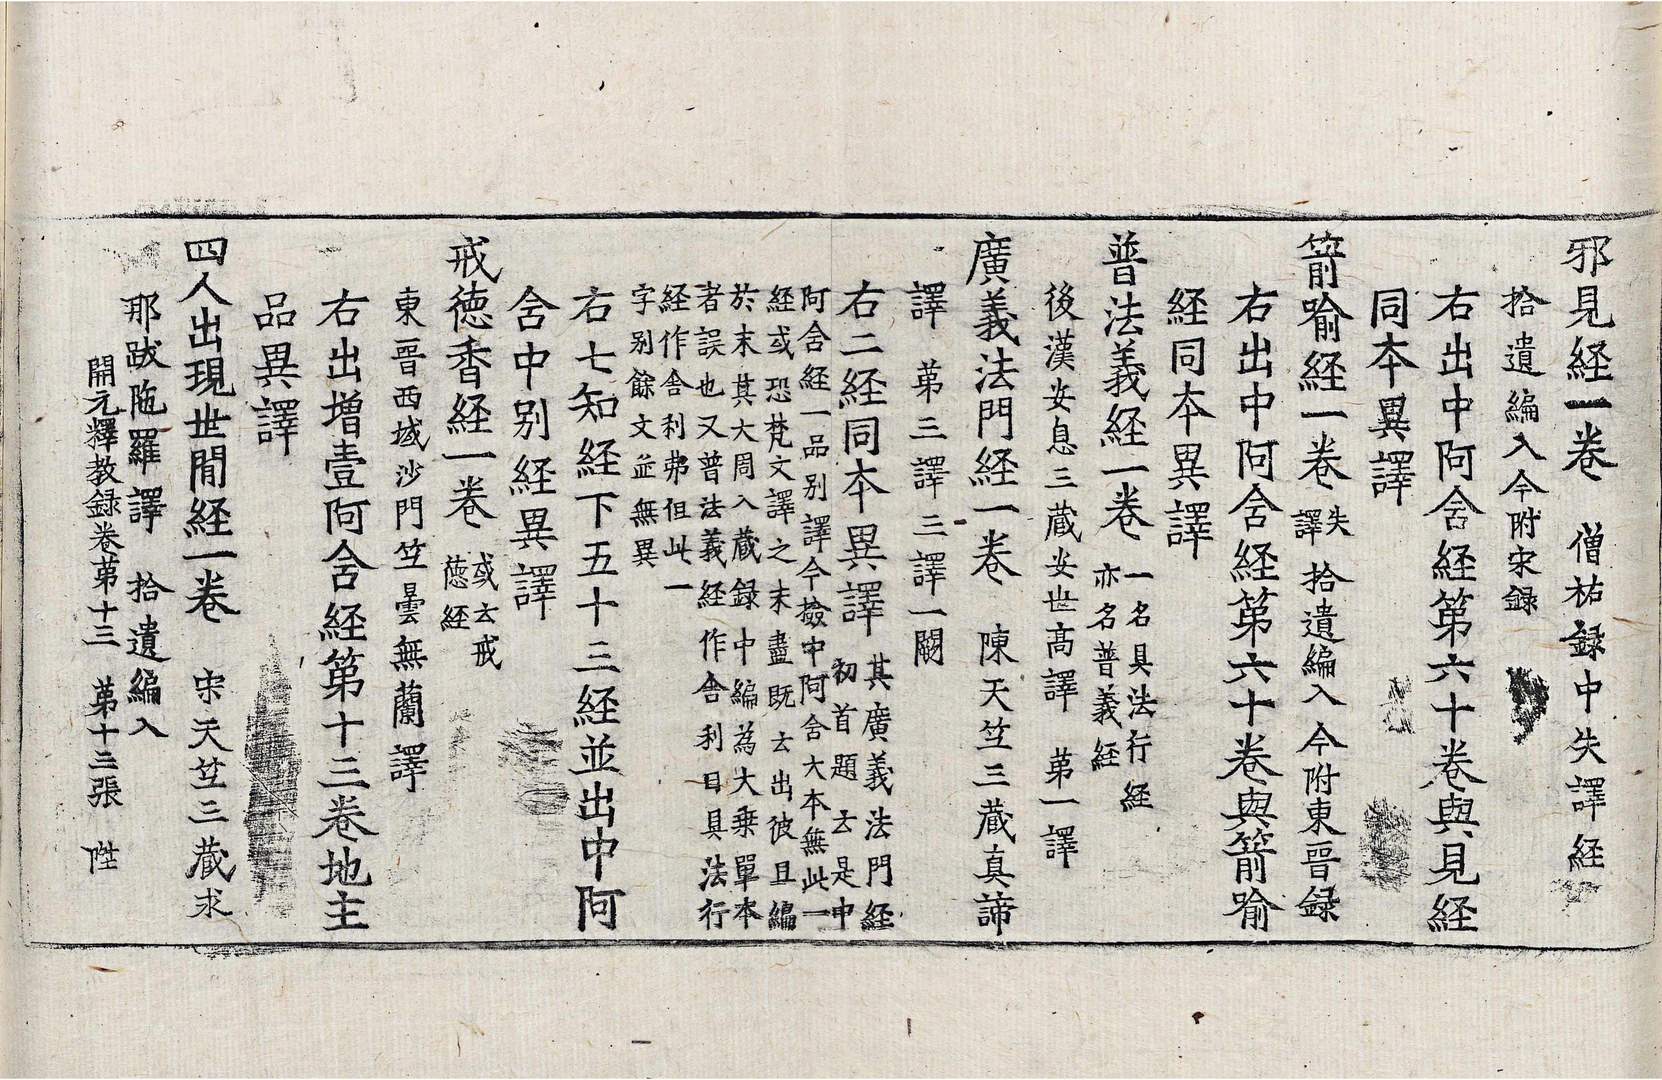 邪見経一卷　僧祐録中失譯経
拾遺編入今附宋録
右出中阿含経第六十卷與見経
同本異譯
箭喻経一卷　失譯　拾遺編入今附東晋録
右出中阿含経第六十卷與箭喻
経同本異譯
普法義経一卷　一名具法行経
亦名普義経
後漢安息三藏安世髙譯　苐一譯
廣義法門経一卷　陳天竺三藏真諦
譯　苐三譯　三譯一闕
右二経同本異譯　其廣義法門経
初首題云是中
阿含経一品別譯今撿中阿含大本無此一
経或恐梵文譯之未盡既云出彼且編
於末其大周入藏録中編為大乗單本
者誤也又普法義経作舍利曰具法行
経作舍利弗但此一
字別餘文並無異
右七知経下五十三経並出中阿
含中別経異譯
戒徳香経一卷　或云戒
徳経
東晋西域沙門竺曇無蘭譯
右出増壹阿含経第十三卷地主
品異譯
四人出現世間経一卷　宋天竺三藏求
那跋陁羅譯　拾遺編入
開元釋教録卷苐十三　苐十三張　陞